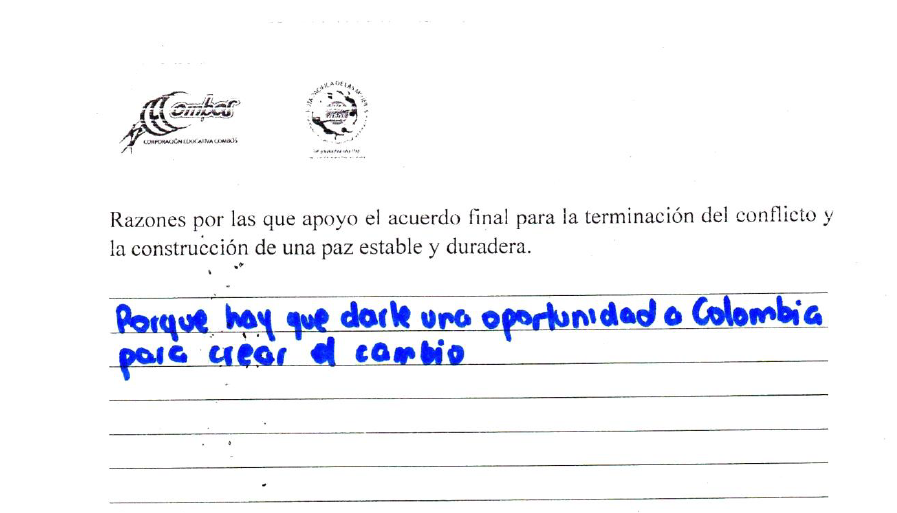 Combos
CORPORACIÓN EDUCATIVA COMBOS
Razones por las que apoyo el acuerdo final para la terminación del conflicto y
la construcción de una paz estable y duradera.
Porque hay que darle una oportunidad a Colombia
para crear el cambio